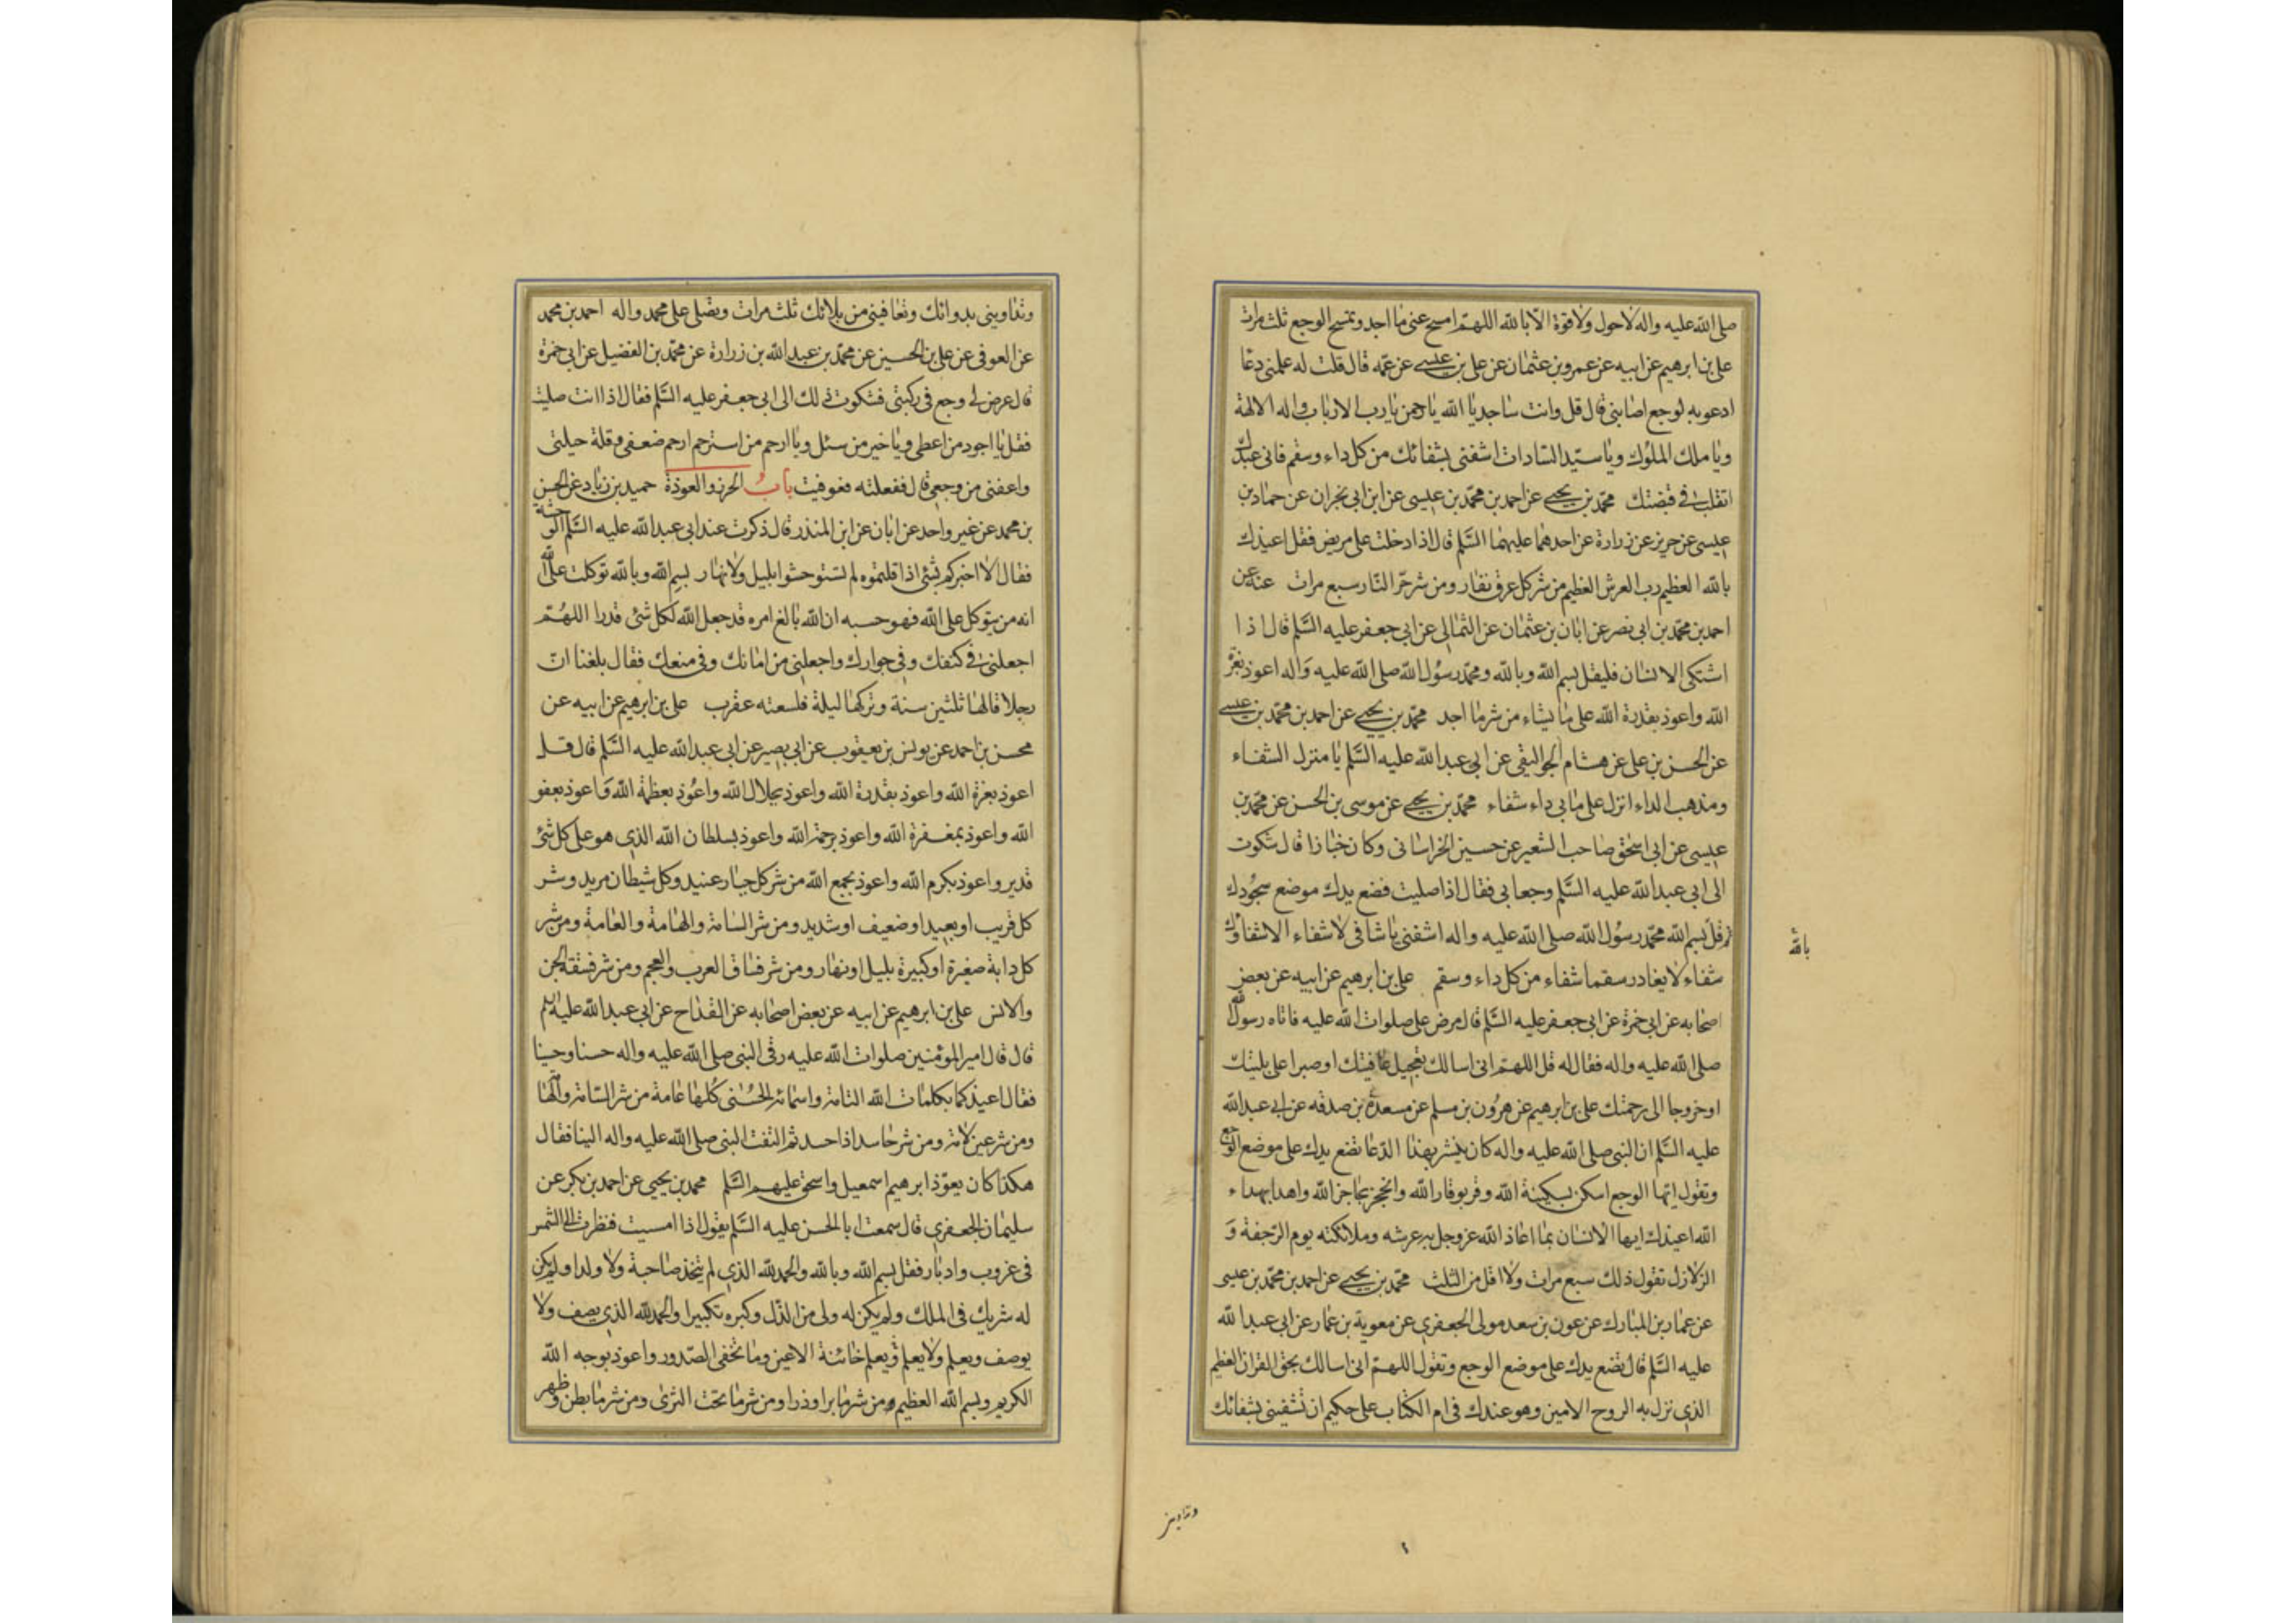 صلى الله عليه واله لاحول ولاقوة الا بالله اللهم امسح عنى ما اجد وتمسح الوجع ثلث مرات
على بن ابرهيم عن ابيه عن عمرو بن عثمان عن على بن عيسى عن عمه قال قلت له علمنى دعا
ادعو به لوجع اصابنى قال قل وانت ساجد يا الله يا رحمن يا رب الارباب واله الالهة
ويا ملك الملوك ويا سيد السادات اشفنى بشفائك من كل داء وسقم فانى عبدك
اتقلب فى قبضتك محمد بن يحيى عن احمد بن محمد بن عيسى عن ابن ابى نجران عن حماد بن
عيسى عن حريز عن زرارة عن احدهما عليهما السلم قال اذا دخلت على مريض فقل اعيذك
بالله العظيم رب العرش العظيم من شر كل عرق نفار ومن شر حر النار سبع مرات عنه عن
احمد بن محمد بن ابى نصر عن ابان بن عثمان عن الثمالى عن ابى جعفر عليه السلم قال اذا
اشتكى الانسان فليقل بسم الله وبالله ومحمد رسول الله صلى الله عليه واله اعوذ بعزة
الله واعوذ بقدرة الله على ما يشاء من شر ما اجد محمد بن يحيى عن احمد بن محمد بن عيسى
عن الحسن بن على عن هشام الجواليقى عن ابى عبد الله عليه السلم يا منزل الشفاء
ومذهب الداء انزل على ما بى داء شفاء محمد بن يحيى عن موسى بن الحسن عن محمد بن
عيسى عن ابى اسحق صاحب الشعير عن حسين الخراسانى وكان خبازا قال شكوت
الى ابى عبد الله عليه السلم وجعا بى فقال اذا صليت فضع يدك موضع سجودك
ثم قل بسم الله محمد رسول الله صلى الله عليه واله اشفنى يا شافى لا شفاء الا شفاؤك
شفاء لا يغادر سقما شفاء من كل داء وسقم على بن ابرهيم عن ابيه عن بعض
اصحابه عن ابى حمزة عن ابى جعفر عليه السلم قال مرض على صلوات الله عليه فاتاه رسول الله
صلى الله عليه واله فقال له قل اللهم انى اسالك تعجيل عافيتك او صبرا على بليتك
او خروجا الى رحمتك على بن ابرهيم عن هرون بن مسلم عن مسعدة بن صدقه عن ابى عبد الله
عليه السلم ان النبى صلى الله عليه واله كان ينشر بهذا الدعا تضع يدك على موضع الوجع
وتقول ايها الوجع اسكن بسكينة الله وقر بوقار الله وانحجز بحاجز الله واهدا بهداء
الله اعيذك ايها الانسان بما اعاذ الله عز وجل به عرشه وملائكته يوم الرجفة و
الزلازل تقول ذلك سبع مرات ولا اقل من الثلث محمد بن يحيى عن احمد بن محمد بن عيسى
عن عمار بن المبارك عن عون بن سعد مولى الجعفرى عن معوية بن عمار عن ابى عبد الله
عليه السلم قال تضع يدك على موضع الوجع وتقول اللهم انى اسالك بحق القران العظيم
الذى نزل به الروح الامين وهو عندك فى ام الكتاب على حكيم ان تشفينى بشفائك
وتداوينى
وتداوينى بدوائك وتعافينى من بلائك ثلث مرات وتصلى على محمد واله احمد بن محمد
عن العوفى عن على بن الحسين عن محمد بن عبد الله بن زرارة عن محمد بن الفضيل عن ابى حمزة
قال عرض لى وجع فى ركبتى فشكوت ذلك الى ابى جعفر عليه السلم فقال اذا انت صليت
فقل يا اجود من اعطى ويا خير من سئل ويا ارحم من استرحم ارحم ضعفى وقلة حيلتى
واعفنى من وجعى قال ففعلته فعوفيت باب الحرز والعوذة حميد بن زياد عن الحسن
بن محمد عن غير واحد عن ابان عن ابن المنذر قال ذكرت عند ابى عبد الله عليه السلم الوحشة
فقال الا اخبركم بشئ اذا قلتموه لم تستوحشوا بليل ولا نهار بسم الله وبالله توكلت على الله
انه من يتوكل على الله فهو حسبه ان الله بالغ امره قد جعل الله لكل شئ قدرا اللهم
اجعلنى فى كنفك وفى جوارك واجعلنى من امانك وفى منعك فقال بلغنا ان
رجلا قالها ثلثين سنة وتركها ليلة فلسعته عقرب على بن ابرهيم عن ابيه عن
محسن بن احمد عن يونس بن يعقوب عن ابى بصير عن ابى عبد الله عليه السلم قال قل
اعوذ بعزة الله واعوذ بقدرة الله واعوذ بجلال الله واعوذ بعظمة الله واعوذ بعفو
الله واعوذ بمغفرة الله واعوذ برحمة الله واعوذ بسلطان الله الذى هو على كل شئ
قدير واعوذ بكرم الله واعوذ بجمع الله من شر كل جبار عنيد وكل شيطان مريد وشر
كل قريب او بعيد او ضعيف او شديد ومن شر السامة والهامة والعامة ومن شر
كل دابة صغيرة او كبيرة بليل او نهار ومن شر فساق العرب والعجم ومن شر فسقة الجن
والانس على بن ابرهيم عن ابيه عن بعض اصحابه عن القداح عن ابى عبد الله عليه السلم
قال قال امير المؤمنين صلوات الله عليه رقى النبى صلى الله عليه واله حسنا وحسينا
فقال اعيذكما بكلمات الله التامة واسمائه الحسنى كلها عامة من شر السامة والهامة
ومن شر عين لامة ومن شر حاسد اذا حسد ثم التفت النبى صلى الله عليه واله الينا فقال
هكذا كان يعوذ ابرهيم اسمعيل واسحق عليهم السلم محمد بن يحيى عن احمد بن بكر عن
سليمان الجعفرى قال سمعت ابا الحسن عليه السلم يقول اذا امسيت فنظرت الى الشمس
فى غروب وادبار فقل بسم الله وبالله والحمد لله الذى لم يتخذ صاحبة ولا ولدا ولم يكن
له شريك فى الملك ولم يكن له ولى من الذل وكبره تكبيرا والحمد لله الذى يصف ولا
يوصف ويعلم ولا يعلم ويعلم خائنة الاعين وما تخفى الصدور واعوذ بوجه الله
الكريم وبسم الله العظيم ومن شر ما برا وذرا ومن شر ما تحت الثرى ومن شر ما بطن وظهر